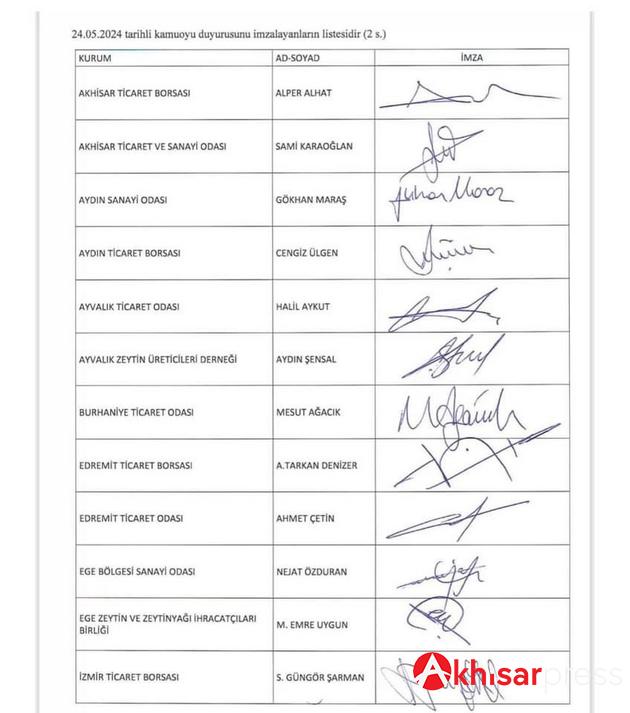 24.05.2024 tarihli kamuoyu duyurusunu imzalayanların listesidir (2 s.)
KURUM AD-SOYAD İMZA
AKHİSAR TİCARET BORSASI ALPER ALHAT
AKHİSAR TİCARET VE SANAYİ ODASI SAMİ KARAOĞLAN
AYDIN SANAYİ ODASI GÖKHAN MARAŞ
AYDIN TİCARET BORSASI CENGİZ ÜLGEN
AYVALIK TİCARET ODASI HALİL AYKUT
AYVALIK ZEYTİN ÜRETİCİLERİ DERNEĞİ AYDIN ŞENSAL
BURHANİYE TİCARET ODASI MESUT AĞACIK
EDREMİT TİCARET BORSASI A.TARKAN DENİZER
EDREMİT TİCARET ODASI AHMET ÇETİN
EGE BÖLGESİ SANAYİ ODASI NEJAT ÖZDURAN
EGE ZEYTİN VE ZEYTİNYAĞI İHRACATÇILARI
BİRLİĞİ M. EMRE UYGUN
İZMİR TİCARET BORSASI S. GÜNGÖR ŞARMAN
Akhisar press